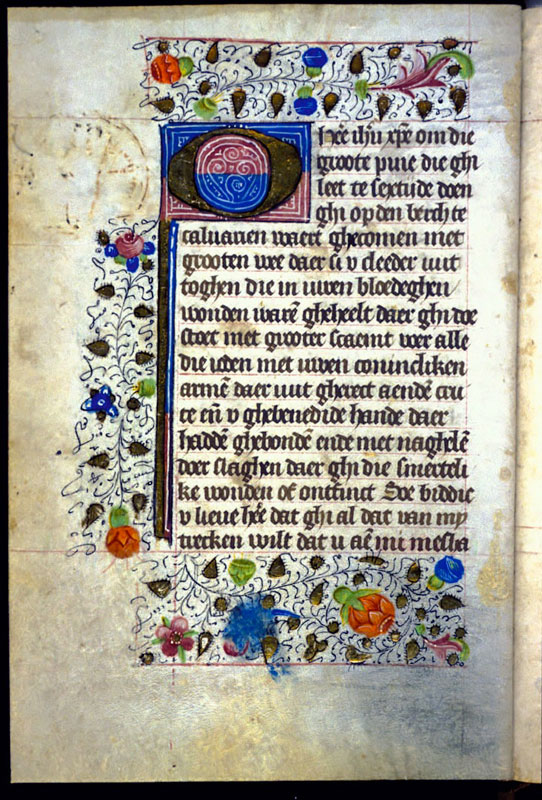 O hēe ihū xpē om die
groote pine die ghi
leet te sextide doen
ghi op den berch te
caluarien waert ghecomen met
grooten wee daer si v cleeder wut
toghen die in uwen bloedeghen
wonden warē gheheelt daer ghi doe
stoet met grooter scaemt voer alle
die ioden met uwen conincliken
armē daer wut gherect aendē cru
ce eñ v ghebenedide hande daer
haddē ghebondē ende met naghelē
doer slaghen daer ghi die smerteli
ke wonden of ontfinct Soe biddic
v lieue hēe dat ghi al dat van my
trecken wilt dat u aē mi mesha